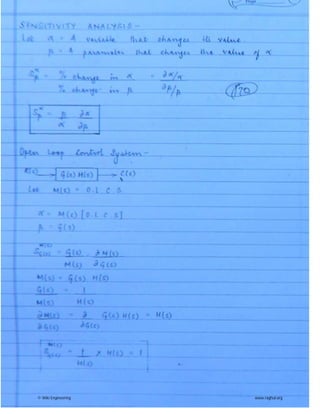 SENSITIVITY ANALYSIS -
Let α = A variable that changes its value
β = A parameter that changes the value of α
S^α_β = % change in α / % change in β = ∂α/α / ∂β/β
S^α_β = β/α ∂α/∂β
Open Loop Control System -
R(s) → G(s) H(s) → C(s)
Let M(s) = O.L C.S.
α = M(s) [O.L C.S]
β = G(s)
S^M(s)_G(s) = G(s)/M(s) ∂M(s)/∂G(s)
M(s) = G(s) H(s)
G(s)/M(s) = 1/H(s)
∂M(s)/∂G(s) = ∂/∂G(s) G(s) H(s) = H(s)
S^M(s)_G(s) = 1/H(s) × H(s) = 1
www.raghul.org